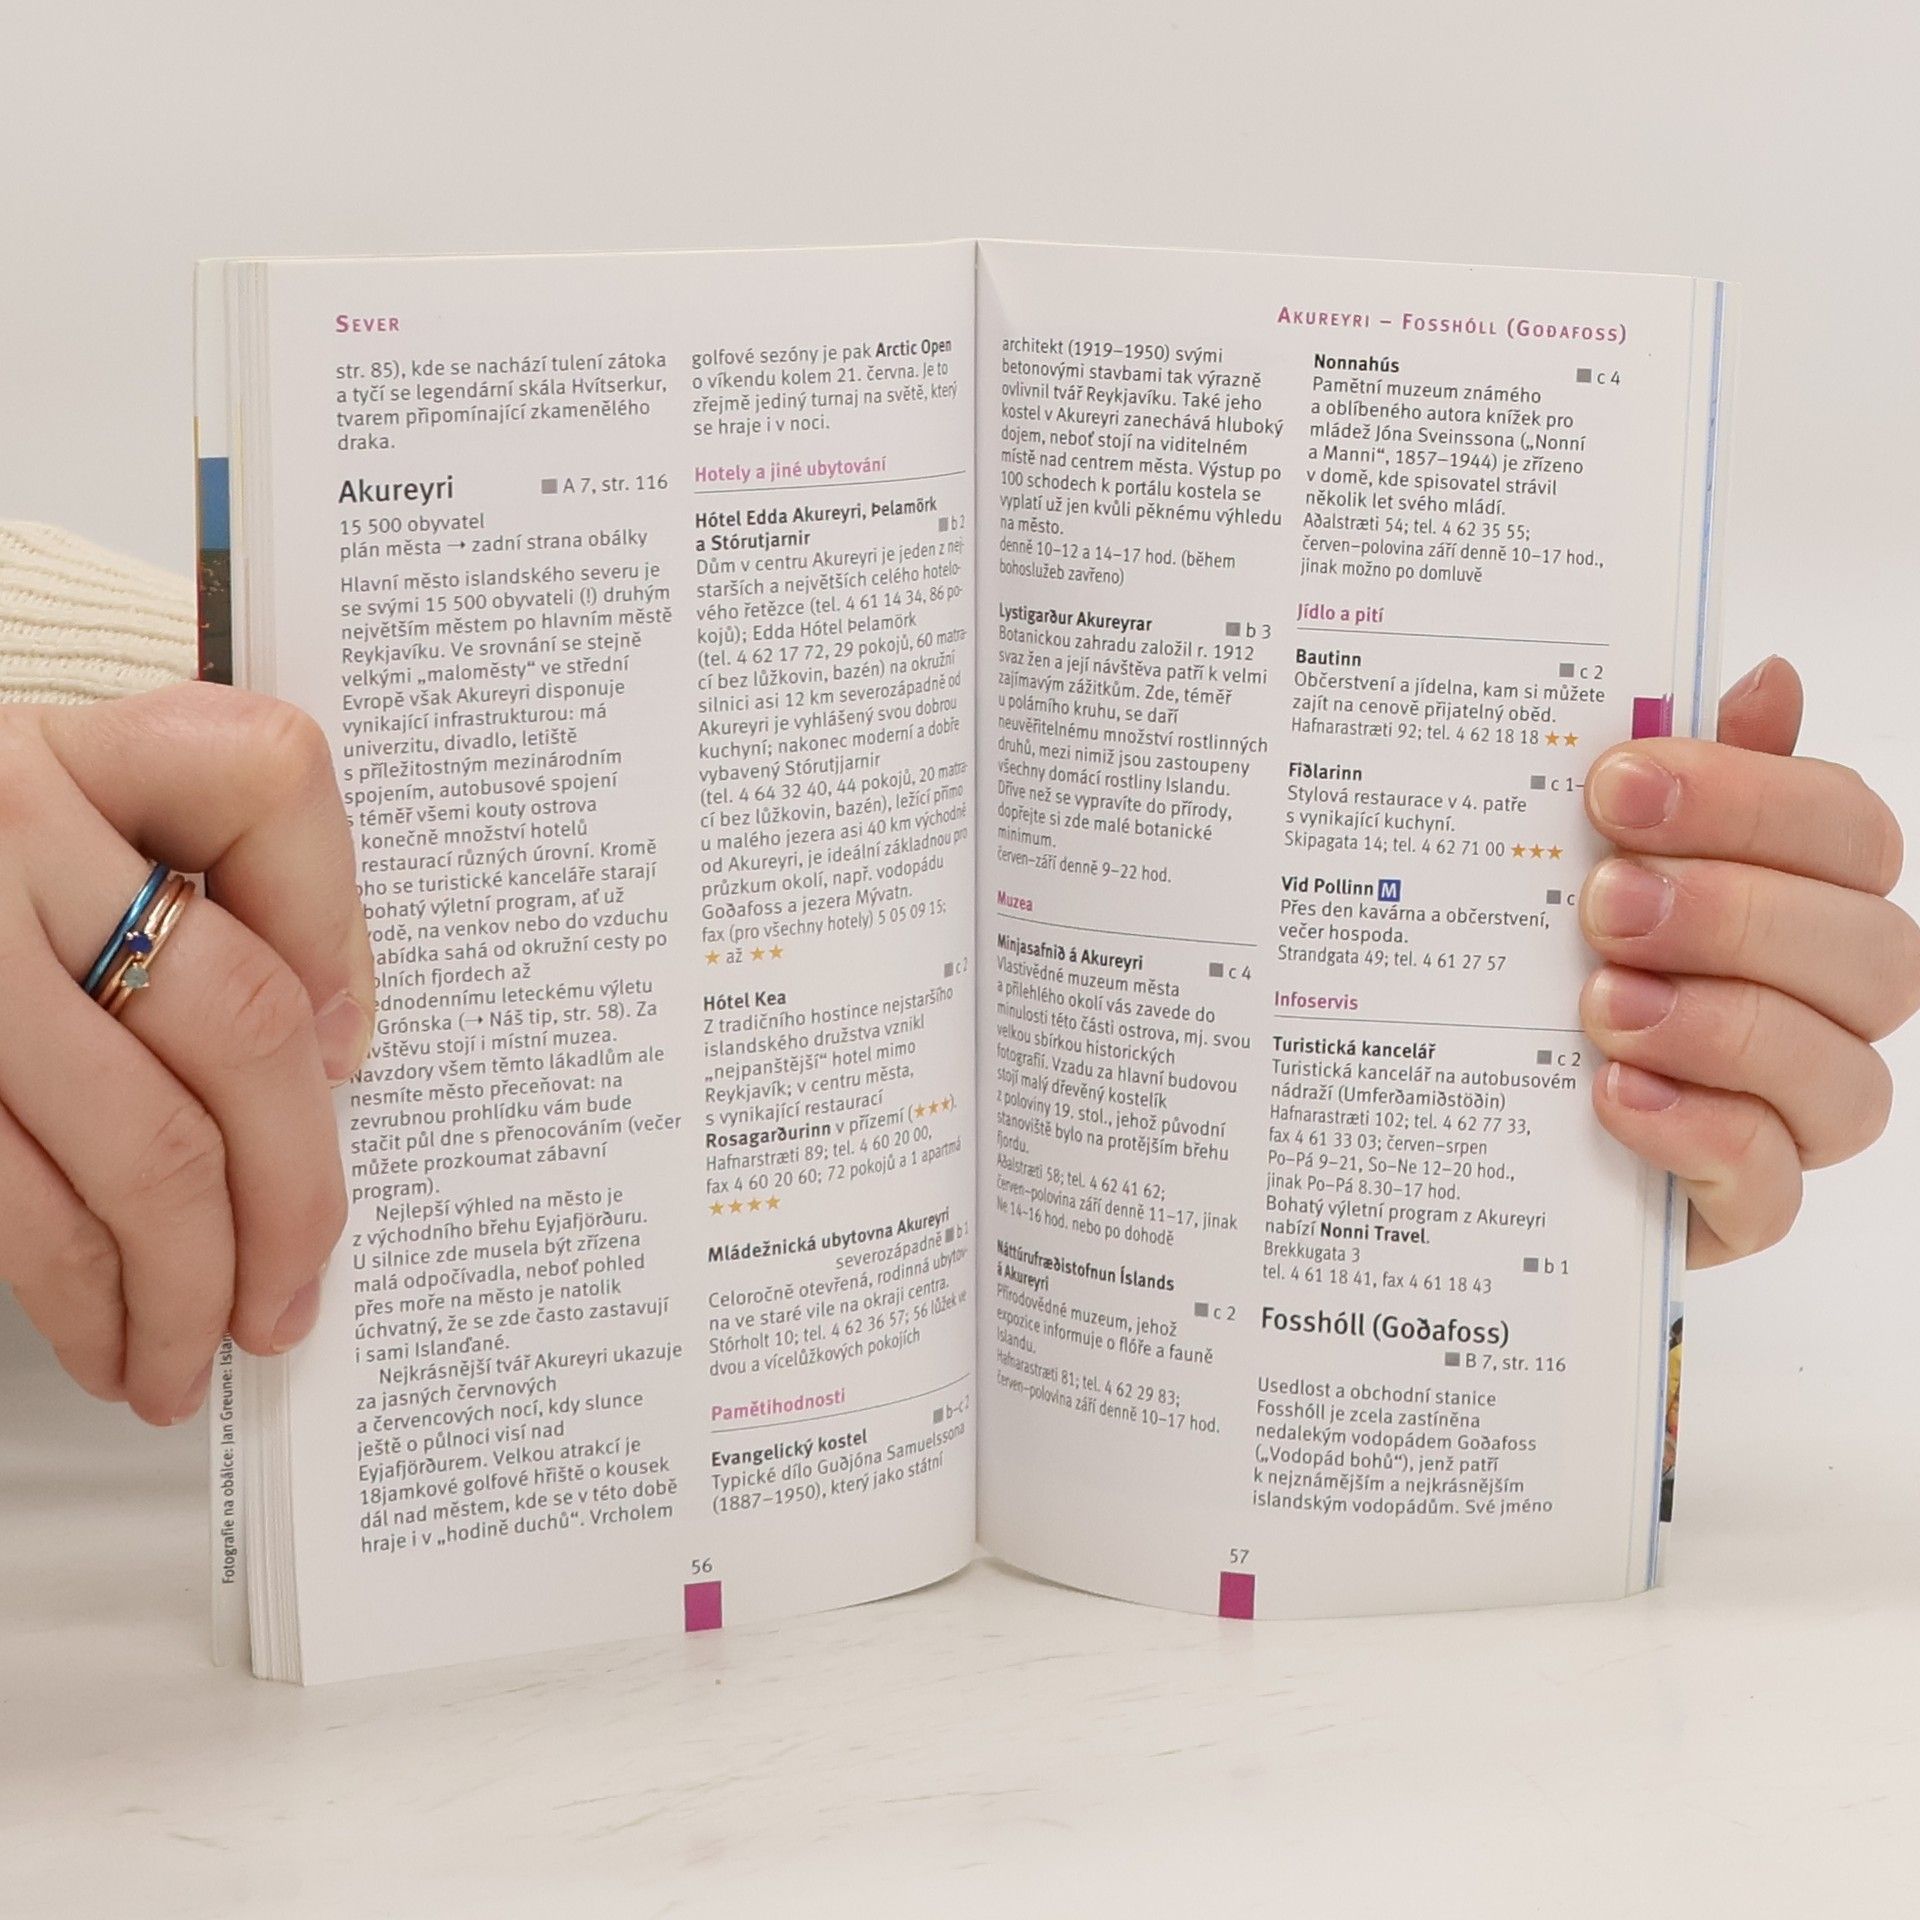 SEVER
str. 85), kde se nachází tulení zátoka
a tyčí se legendární skála Hvítserkur,
tvarem připomínající zkamenělého
draka.
Akureyri
A 7, str. 116
15 500 obyvatel
plán města → zadní strana obálky
Hlavní město islandského severu je
se svými 15 500 obyvateli (!) druhým
největším městem po hlavním městě
Reykjavíku. Ve srovnání se stejně
velkými „maloměsty“ ve střední
Evropě však Akureyri disponuje
vynikající infrastrukturou: má
univerzitu, divadlo, letiště
s příležitostným mezinárodním
spojením, autobusové spojení
s téměř všemi kouty ostrova
konečně množství hotelů
restaurací různých úrovní. Kromě
se turistické kanceláře starají
bohatý výletní program, ať už
na venkov nebo do vzduchu
sahá od okružní cesty po
fjordech až
leteckému výletu
Grónska (→ Náš tip, str. 58). Za
stojí i místní muzea.
Navzdory všem těmto lákadlům ale
nesmíte město přeceňovat: na
zevrubnou prohlídku vám bude
stačit půl dne s přenocováním (večer
můžete prozkoumat zábavní
program).
Nejlepší výhled na město je
z východního břehu Eyjafjörðuru.
U silnice zde musela být zřízena
malá odpočívadla, neboť pohled
přes moře na město je natolik
úchvatný, že se zde často zastavují
i sami Islanďané.
Nejkrásnější tvář Akureyri ukazuje
za jasných červnových
a červencových nocí, kdy slunce
ještě o půlnoci visí nad
Eyjafjörðurem. Velkou atrakcí je
18jamkové golfové hřiště o kousek
dál nad městem, kde se v této době
hraje i v „hodině duchů“. Vrcholem
golfové sezóny je pak Arctic Open
o víkendu kolem 21. června. Je to
zřejmě jediný turnaj na světě, který
se hraje i v noci.
Hotely a jiné ubytování
Hótel Edda Akureyri, Þelamörk
a Stórutjarnir
b 2
Dům v centru Akureyri je jeden z nej-
starších a největších celého hotelo-
vého řetězce (tel. 4 61 14 34, 86 po-
kojů); Edda Hótel Þelamörk
(tel. 4 62 17 72, 29 pokojů, 60 matra-
cí bez lůžkovin, bazén) na okružní
silnici asi 12 km severozápadně od
Akureyri je vyhlášený svou dobrou
kuchyní; nakonec moderní a dobře
vybavený Stórutjjarnir
(tel. 4 64 32 40, 44 pokojů, 20 matra-
cí bez lůžkovin, bazén), ležící přímo
u malého jezera asi 40 km východně
od Akureyri, je ideální základnou pro
průzkum okolí, např. vodopádu
Goðafoss a jezera Mývatn.
fax (pro všechny hotely) 5 05 09 15;
★ až ★★
c 2
Hótel Kea
Z tradičního hostince nejstaršího
islandského družstva vznikl
„nejpanštější“ hotel mimo
Reykjavík; v centru města,
s vynikající restaurací
Rosagarðurinn v přízemí (★★★).
Hafnarstræti 89; tel. 4 60 20 00,
fax 4 60 20 60; 72 pokojů a 1 apartmá
★★★★
Mládežnická ubytovna Akureyri
severozápadně b 1
Celoročně otevřená, rodinná ubytov-
na ve staré vile na okraji centra.
Stórholt 10; tel. 4 62 36 57; 56 lůžek ve
dvou a vícelůžkových pokojích
Pamětihodnosti
b–c 2
Evangelický kostel
Typické dílo Guðjóna Samuelssona
(1887–1950), který jako státní
56
AKUREYRI – FOSSHÓLL (GOÐAFOSS)
architekt (1919–1950) svými
betonovými stavbami tak výrazně
ovlivnil tvář Reykjavíku. Také jeho
kostel v Akureyri zanechává hluboký
dojem, neboť stojí na viditelném
místě nad centrem města. Výstup po
100 schodech k portálu kostela se
vyplatí už jen kvůli pěknému výhledu
na město.
denně 10–12 a 14–17 hod. (během
bohoslužeb zavřeno)
Lystigarður Akureyrar
b 3
Botanickou zahradu založil r. 1912
svaz žen a její návštěva patří k velmi
zajímavým zážitkům. Zde, téměř
u polárního kruhu, se daří
neuvěřitelnému množství rostlinných
druhů, mezi nimiž jsou zastoupeny
všechny domácí rostliny Islandu.
Dříve než se vypravíte do přírody,
dopřejte si zde malé botanické
minimum.
červen–září denně 9–22 hod.
Muzea
Minjasafnið á Akureyri
c 4
Vlastivědné muzeum města
a přilehlého okolí vás zavede do
minulosti této části ostrova, mj. svou
velkou sbírkou historických
fotografií. Vzadu za hlavní budovou
stojí malý dřevěný kostelík
z poloviny 19. stol., jehož původní
stanoviště bylo na protějším břehu
fjordu.
Aðalstræti 58; tel. 4 62 41 62;
červen–polovina září denně 11–17, jinak
Ne 14–16 hod. nebo po dohodě
Náttúrufræðistofnun Íslands
á Akureyri
c 2
Přírodovědné muzeum, jehož
expozice informuje o flóře a fauně
Islandu.
Hafnarastræti 81; tel. 4 62 29 83;
červen–polovina září denně 10–17 hod.
Nonnahús
c 4
Pamětní muzeum známého
a oblíbeného autora knížek pro
mládež Jóna Sveinssona („Nonní
a Manni“, 1857–1944) je zřízeno
v domě, kde spisovatel strávil
několik let svého mládí.
Aðalstræti 54; tel. 4 62 35 55;
červen–polovina září denně 10–17 hod.,
jinak možno po domluvě
Jídlo a pití
Bautinn
c 2
Občerstvení a jídelna, kam si můžete
zajít na cenově přijatelný oběd.
Hafnarastræti 92; tel. 4 62 18 18 ★★
Fiðlarinn
c 1–
Stylová restaurace v 4. patře
s vynikající kuchyní.
Skipagata 14; tel. 4 62 71 00 ★★★
Vid Pollinn M
c
Přes den kavárna a občerstvení,
večer hospoda.
Strandgata 49; tel. 4 61 27 57
Infoservis
Turistická kancelář
c 2
Turistická kancelář na autobusovém
nádraží (Umferðamiðstöðin)
Hafnarastræti 102; tel. 4 62 77 33,
fax 4 61 33 03; červen–srpen
Po–Pá 9–21, So–Ne 12–20 hod.,
jinak Po–Pá 8.30–17 hod.
Bohatý výletní program z Akureyri
nabízí Nonni Travel.
Brekkugata 3
b 1
tel. 4 61 18 41, fax 4 61 18 43
Fosshóll (Goðafoss)
B 7, str. 116
Usedlost a obchodní stanice
Fosshóll je zcela zastíněna
nedalekým vodopádem Goðafoss
(„Vodopád bohů“), jenž patří
k nejznámějším a nejkrásnějším
islandským vodopádům. Své jméno
57
Fotografie na obálce: Jan Greune: